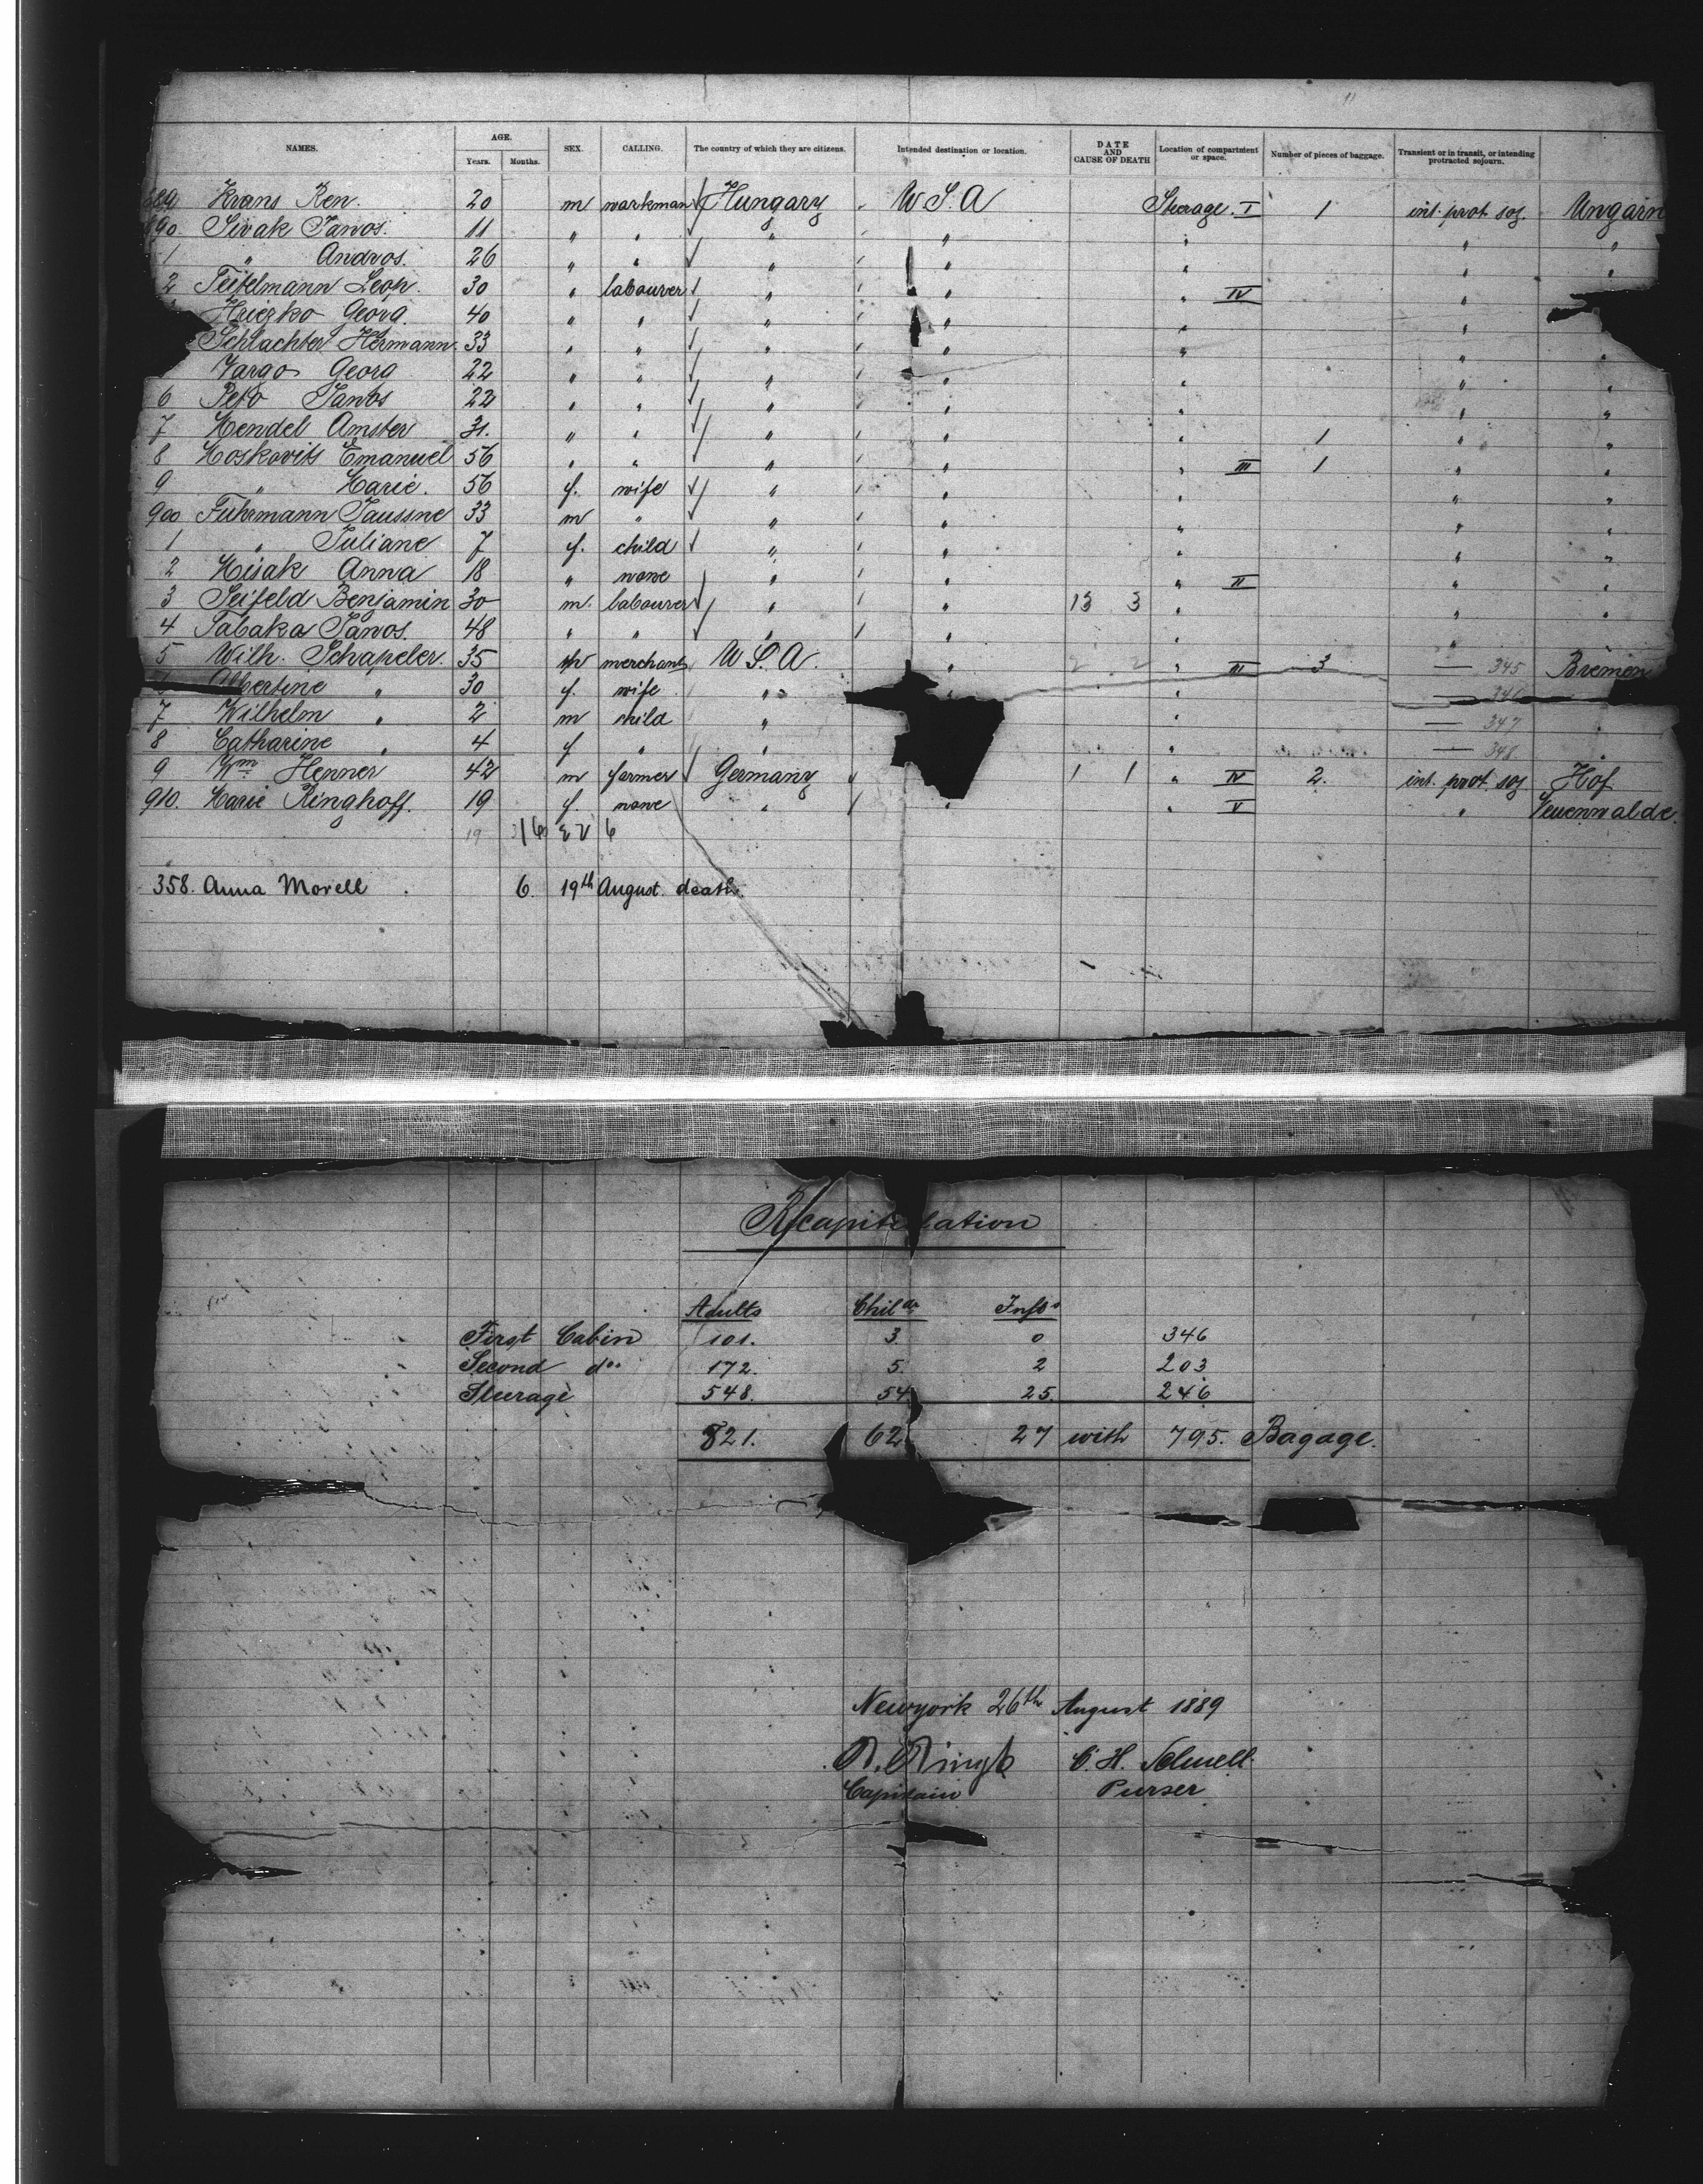 NAMES. AGE. Years. Months. SEX. CALLING. The country of which they are citizens. Intended destination or location. DATE AND CAUSE OF DEATH Location of compartment or space. Number of pieces of baggage. Transient or in transit, or intending protracted sojourn.
889 Krans Ren. 20 m workman Hungary U.S.A Steerage. I 1 int. prot. soj. Ungarn
890. Sivak Janos. 11 " " " " " " "
1 " Andros. 26 " " " " " " "
2 Teitelmann Leop. 30 " labourer " " " IV "
Georg. 40 " " " " " "
Schlachter Hermann. 33 " " " " " " "
Vargo Georg 22 " " " " " " "
6 Peto Janos 22 " " " " " " "
7 Mendel Amster 31. " " " " " 1 " "
8 Moskovits Emanuel 56 " " " " " III 1 " "
9 " Marie. 56 f. wife " " " " "
900 Fuhrmann 33 m " " " " " "
1 " Juliane 7 f. child " " " " "
2 Misak Anna 18 " none " " " II " "
3 Seifeld Benjamin 30 m. labourer " " 13 3 " " "
4 Tabaka Janos. 48 " " " " " "
5 Wilh. Schapeler. 35 m merchant U.S.A. " 2 2 " III 3 — 345 Bremen
Albertine " 30 f. wife " " " — 346
7 Wilhelm " 2 m child " " — 347 "
8 Catharine " 4 f " " " — 348 "
9 Wm Henner 42 m farmer Germany " 1 1 " IV 2. int. prot. soj Hof
910. Marie Ringhoff. 19 f. none " " " V " Neuenwalde.
19 6
358. Anna Morell 6. 19th August. death.
Recapitulation
Adults Childr Infs.
First Cabin 101. 3 0 346
Second do. 172. 5. 2 203
Steerage 548. 54. 25. 246
821. 62 27 with 795. Bagage.
Newyork 26th August 1889
R. Ringk C. H.
Capitain Purser